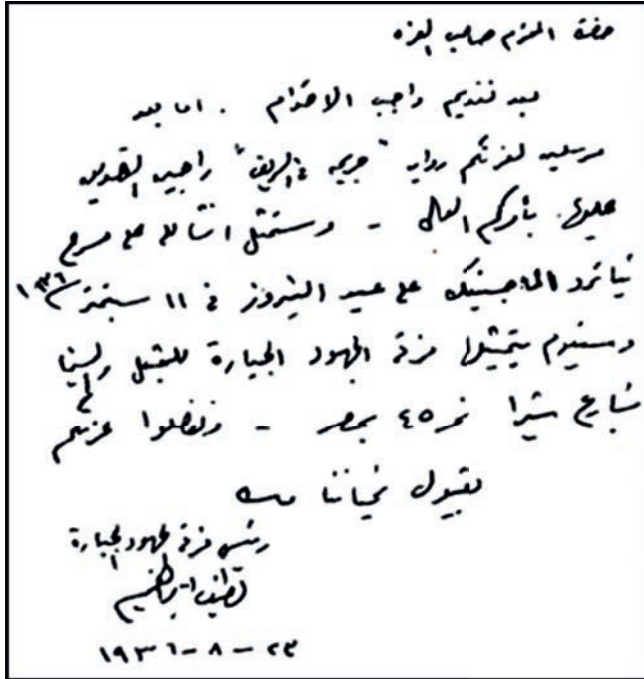 حضرة المحترم صاحب العزه
بعد تقديم واجب الاحترام . اما بعد
مرسلين لعزتكم رواية "جريمه في الريف" راجيين التصديق
عليها بأمركم العالى - وستمثل انشالله على مسرح
تياترو الماجستيك على عيد النيروز فى ١١ سبتمبر ١٩٣٦
وسيقوم بتمثيلها فرقة الجهود الجبارة للتمثيل والسينما
بشارع شبرا نمر ٤٥ بمصر - وتفضلوا عزتكم
بقبول تحياتنا
رئيس فرقة الجهود الجبارة
لطيف ابراهيم
٢٣ - ٨ - ١٩٣٦